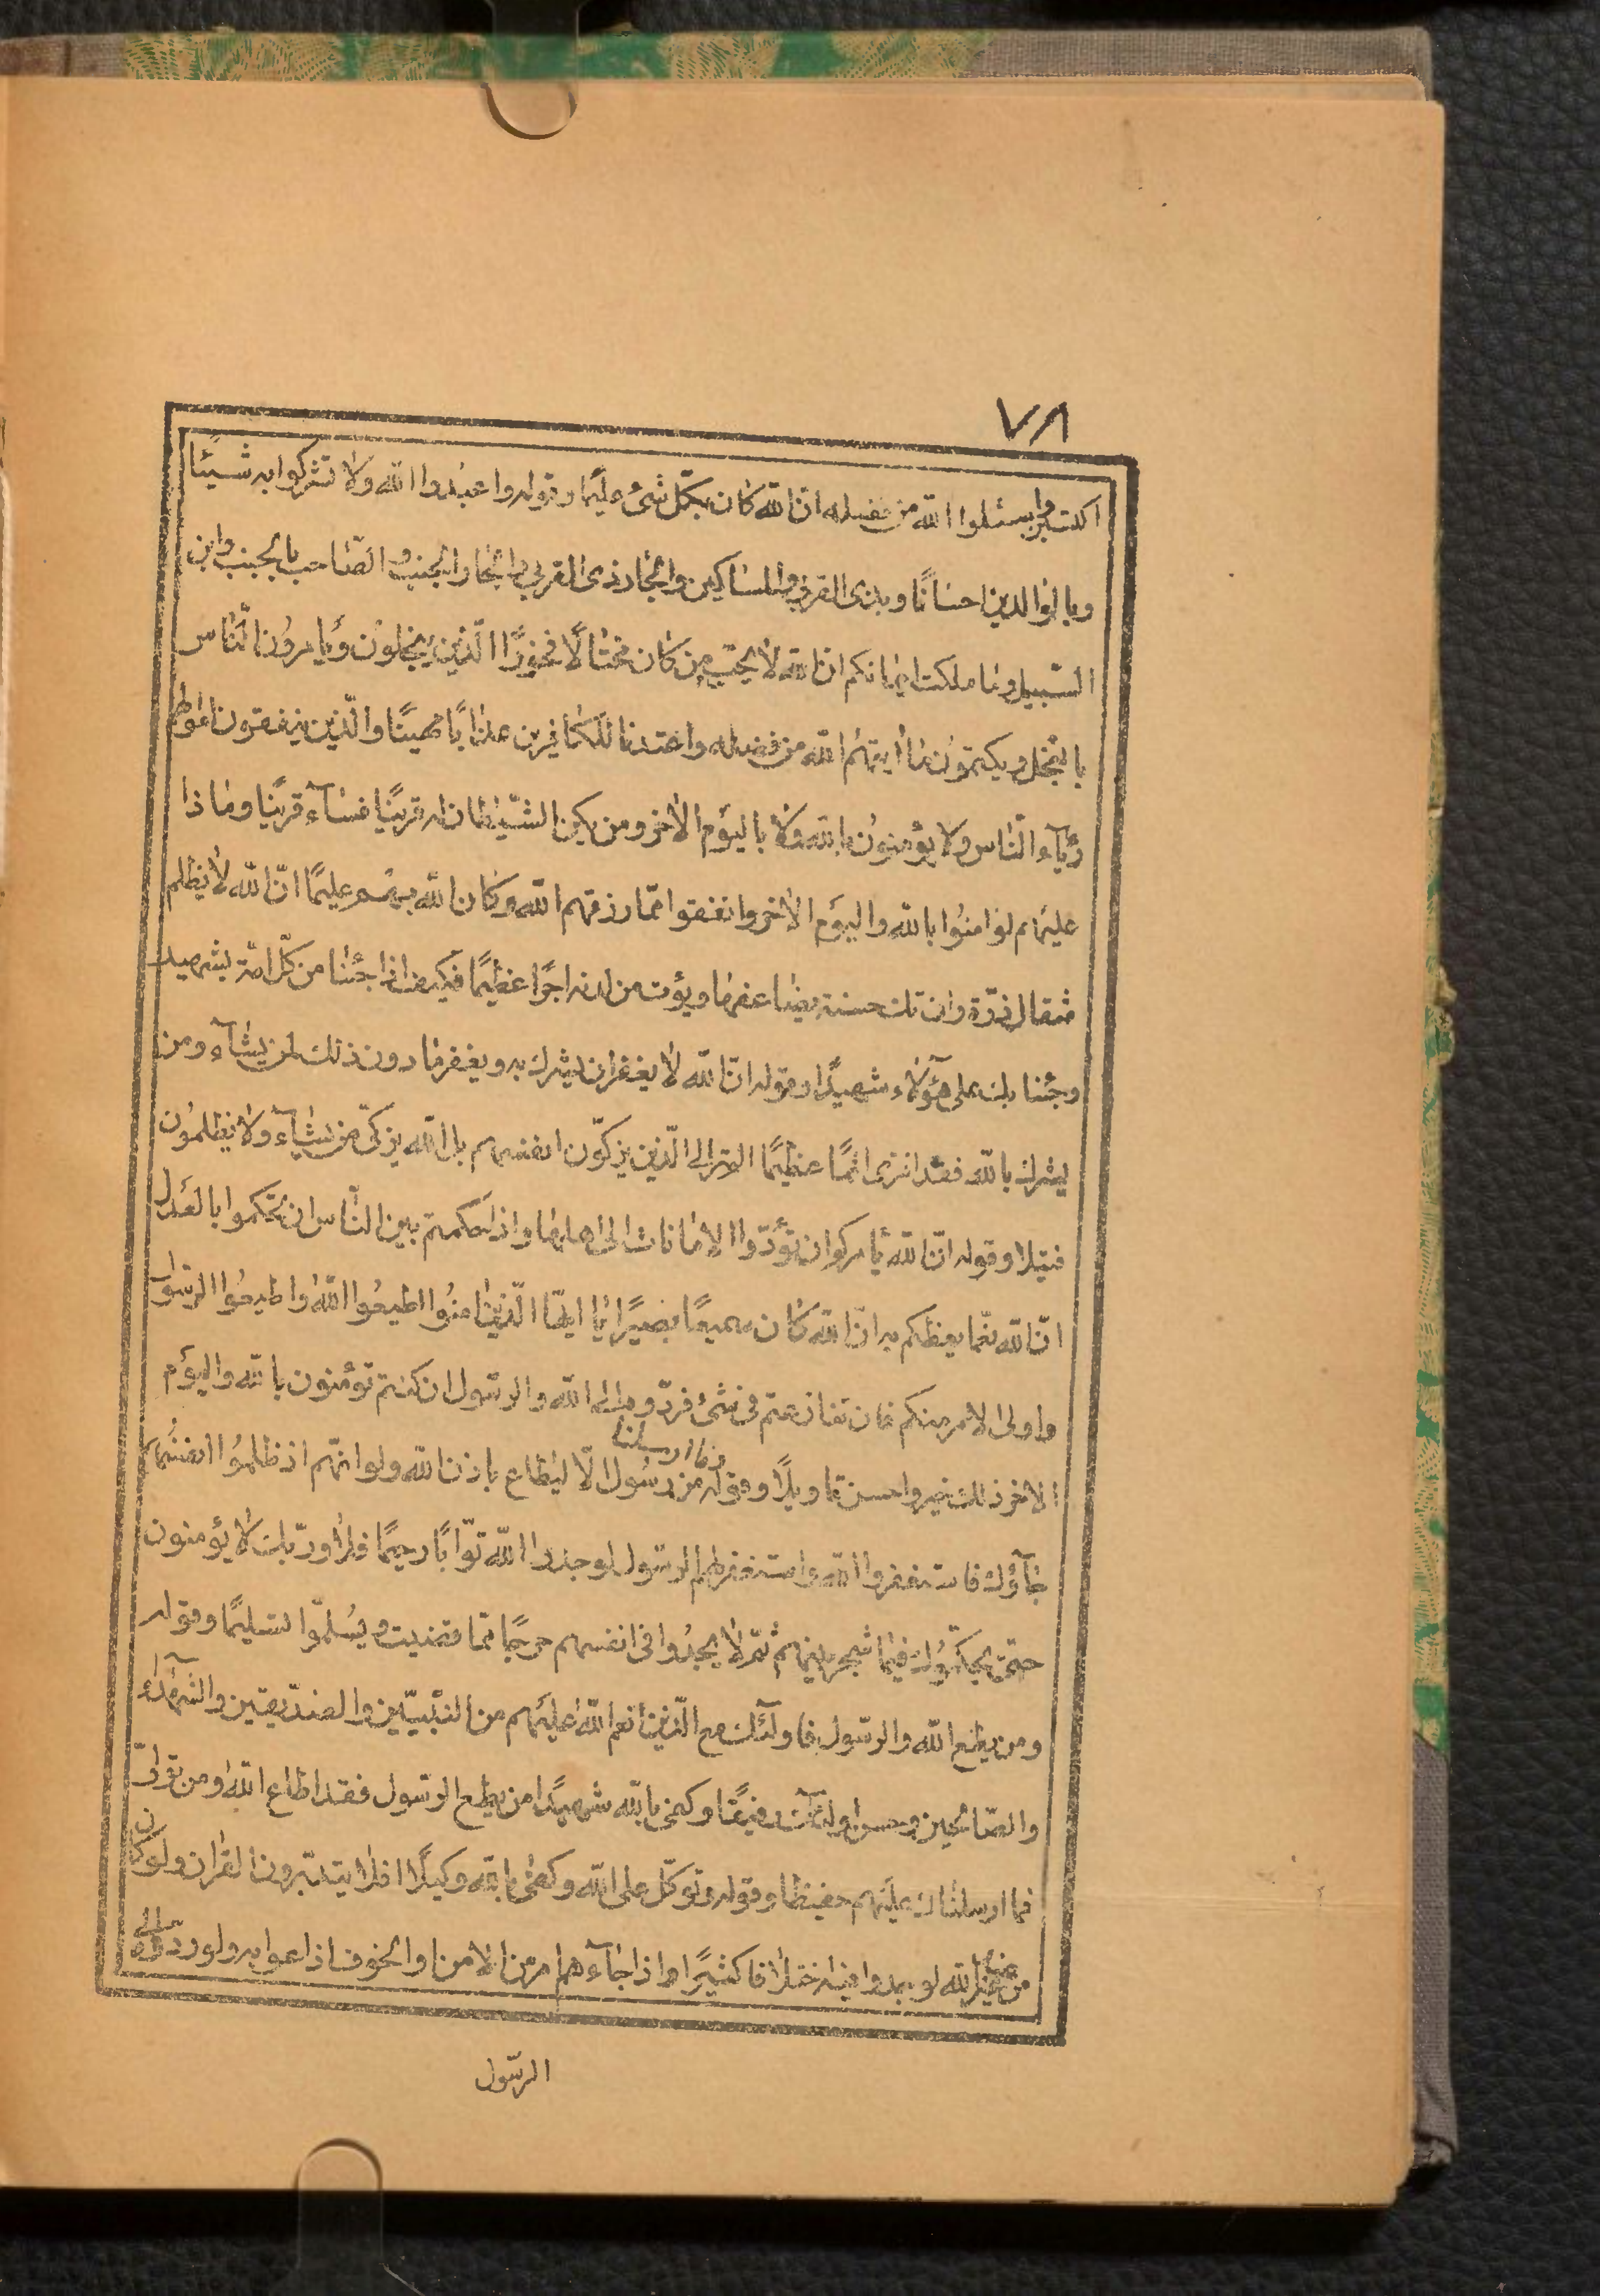 ٧٨
اكتسبن واسئلوا الله من فضله انّ الله كان بكلّ شئ عليمًا وقوله واعبدوا الله ولا تشركوا به شيئًا
وبالوالدين احسانًا وبذى القربى والمساكين والجار ذى القربى والجار الجنب والصّاحب بالجنب وابن
السّبيل وما ملكت ايمانكم انّ الله لا يحبّ من كان مختالًا فخورًا الّذين يبخلون ويأمرون النّاس
بالبخل ويكتمون ما اتيهم الله من فضله واعتدنا للكافرين عذابًا مهينًا والّذين ينفقون اموالهم
رئآء النّاس ولا يؤمنون بالله ولا باليوم الاخر ومن يكن الشّيطان له قرينًا فسآء قرينًا وماذا
عليهم لو امنوا بالله واليوم الاخر وانفقوا ممّا رزقهم الله وكان الله بهم عليمًا انّ الله لا يظلم
مثقال ذرّة وان تك حسنة يضاعفها ويؤت من لدنه اجرًا عظيمًا فكيف اذا جئنا من كلّ امّة بشهيد
وجئنا بك على هؤلآء شهيدًا وقوله انّ الله لا يغفر ان يشرك به ويغفر ما دون ذلك لمن يشآء ومن
يشرك بالله فقد افترى اثمًا عظيمًا الم تر الى الّذين يزكّون انفسهم بل الله يزكّى من يشآء ولا يظلمون
فتيلا وقوله انّ الله يأمركم ان تؤدّوا الامانات الى اهلها واذا حكمتم بين النّاس ان تحكموا بالعدل
انّ الله نعمّا يعظكم به انّ الله كان سميعًا بصيرًا يا ايّها الّذين امنوا اطيعوا الله واطيعوا الرّسول
واولى الامر منكم فان تنازعتم فى شئ فردّوه الى الله والرّسول ان كنتم تؤمنون بالله واليوم
الاخر ذلك خير واحسن تاويلًا وقوله وما ارسلنا من رسول الّا ليطاع باذن الله ولو انّهم اذ ظلموا انفسهم
جآؤك فاستغفروا الله واستغفر لهم الرّسول لوجدوا الله توّابًا رحيمًا فلا وربّك لا يؤمنون
حتّى يحكّموك فيما شجر بينهم ثمّ لا يجدوا فى انفسهم حرجًا ممّا قضيت ويسلّموا تسليمًا وقوله
ومن يطع الله والرّسول فاولئك مع الّذين انعم الله عليهم من النّبيّين والصّدّيقين والشّهدآء
والصّالحين وحسن اولئك رفيقًا وكفى بالله شهيدًا من يطع الرّسول فقد اطاع الله ومن تولّى
فما ارسلناك عليهم حفيظا وقوله وتوكّل على الله وكفى بالله وكيلًا افلا يتدبّرون القران ولو كان
من عند غير الله لوجدوا فيه اختلافا كثيرًا واذا جآءهم امر من الامن او الخوف اذاعوا به ولو ردّوه الى
الرّسول